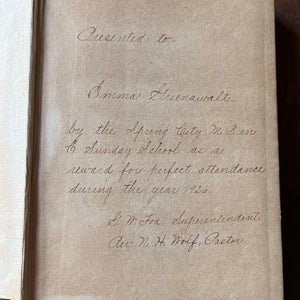 Presented to.
Emma Greenawalt.
by the Spring City M. E.
E. Sunday School as a
reward for perfect attendance
during the year
Superintendent
Rev. N. H. Wolf, Pastor